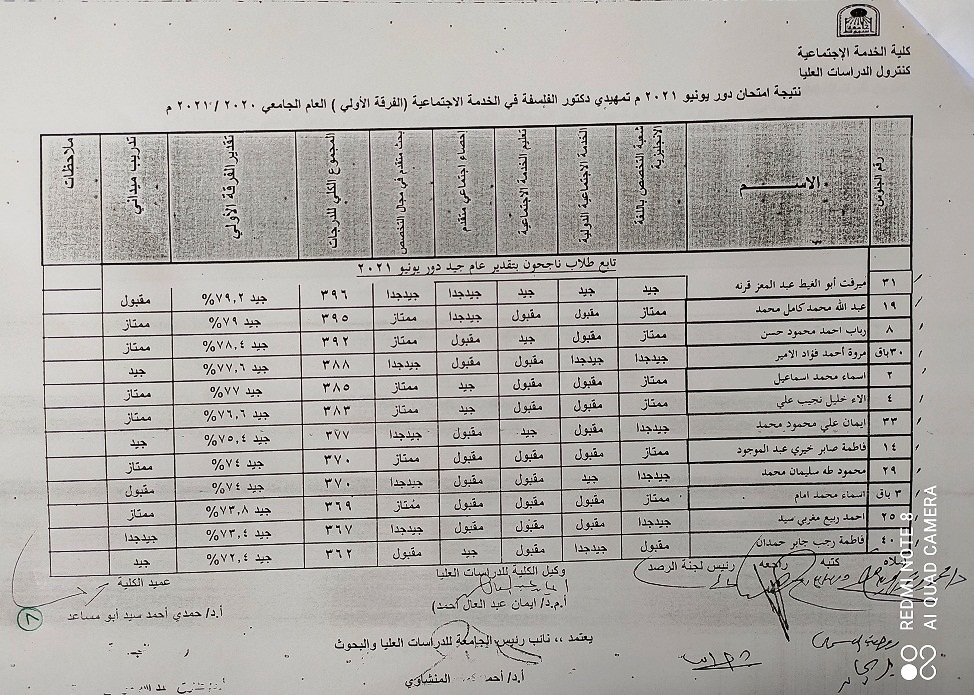 كلية الخدمة الإجتماعية
كنترول الدراسات العليا
نتيجة امتحان دور يونيو ٢٠٢١ م تمهيدي دكتور الفلسفة في الخدمة الاجتماعية (الفرقة الأولي) العام الجامعي ٢٠٢٠ / ٢٠٢١ م
رقم الجلوس الاســـــم شعبة التخصص باللغة الانجليزية الخدمة الاجتماعية الدولية تعليم الخدمة الاجتماعية احصاء اجتماعي متقدم بحث متقدم في مجال التخصص المجموع الكلي للدرجات تقدير الفرقة الأولي تدريب ميداني ملاحظات
تابع طلاب ناجحون بتقدير عام جيد دور يونيو ٢٠٢١
٣١ ميرفت أبو الغيط عبد المعز قرنه جيد جيد جيد جيدجدا جيدجدا ٣٩٦ جيد ٧٩,٢% مقبول
١٩ عبد الله محمد كامل محمد ممتاز مقبول مقبول جيدجدا ممتاز ٣٩٥ جيد ٧٩% ممتاز
٨ رباب احمد محمود حسن ممتاز مقبول جيد مقبول ممتاز ٣٩٢ جيد ٧٨,٤% ممتاز
٣٠باق مروة أحمد فؤاد الامير جيدجدا جيدجدا مقبول مقبول جيدجدا ٣٨٨ جيد ٧٧,٦% جيد
٢ اسماء محمد اسماعيل ممتاز مقبول مقبول جيد ممتاز ٣٨٥ جيد ٧٧% ممتاز
٤ الاء خليل نجيب علي ممتاز مقبول مقبول جيد ممتاز ٣٨٣ جيد ٧٦,٦% ممتاز
٣٣ ايمان علي محمود محمد جيدجدا مقبول جيد مقبول جيدجدا ٣٧٧ جيد ٧٥,٤% جيد
١٤ فاطمة صابر خيري عبد الموجود ممتاز مقبول مقبول مقبول ممتاز ٣٧٠ جيد ٧٤% ممتاز
٢٩ محمود طه سليمان محمد جيدجدا جيد مقبول مقبول جيدجدا ٣٧٠ جيد ٧٤% مقبول
٣ باق اسماء محمد امام ممتاز مقبول مقبول مقبول ممتاز ٣٦٩ جيد ٧٣,٨% ممتاز
٢٥ احمد ربيع مغربي سيد جيدجدا مقبول مقبول مقبول جيدجدا ٣٦٧ جيد ٧٣,٤% جيدجدا
٤٠ فاطمة رجب جابر حمدان مقبول جيدجدا مقبول جيد مقبول ٣٦٢ جيد ٧٢,٤% جيد
كتبه راجعه رئيس لجنة الرصد وكيل الكلية للدراسات العليا عميد الكلية
أ.م.د/ ايمان عبد العال احمد) أ.د/ حمدي أحمد سيد أبو مساعد
يعتمد ،، نائب رئيس الجامعة للدراسات العليا والبحوث
أ.د/ أحمد المنشاوي
REDMI NOTE 8
AI QUAD CAMERA